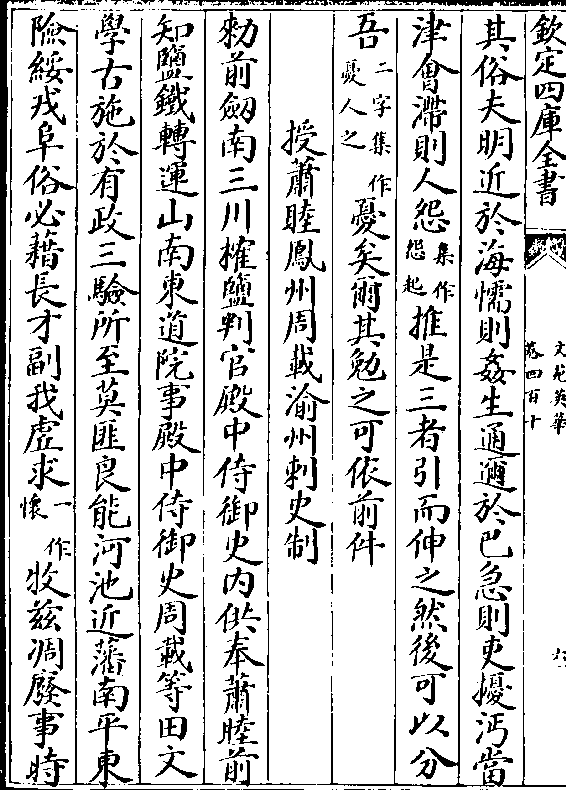 欽定四庫全書
文苑英華
卷四百十
其俗夫明近於海懦則姦生通邇於巴急則吏擾沔當
津會滯則人怨集作怨起推是三者引而伸之然後可以分
吾二字集作憂人之憂矣爾其勉之可依前件
授蕭睦鳳州周載渝州刺史制
勑前劒南三川搉鹽判官殿中侍御史内供奉蕭睦前
知鹽鐵轉運山南東道院事殿中侍御史周載等田文
學古施於有政三驗所至莫匪良能河池近藩南平東
險綏戎阜俗必藉長才副我虚求一作懷牧兹凋廢事時